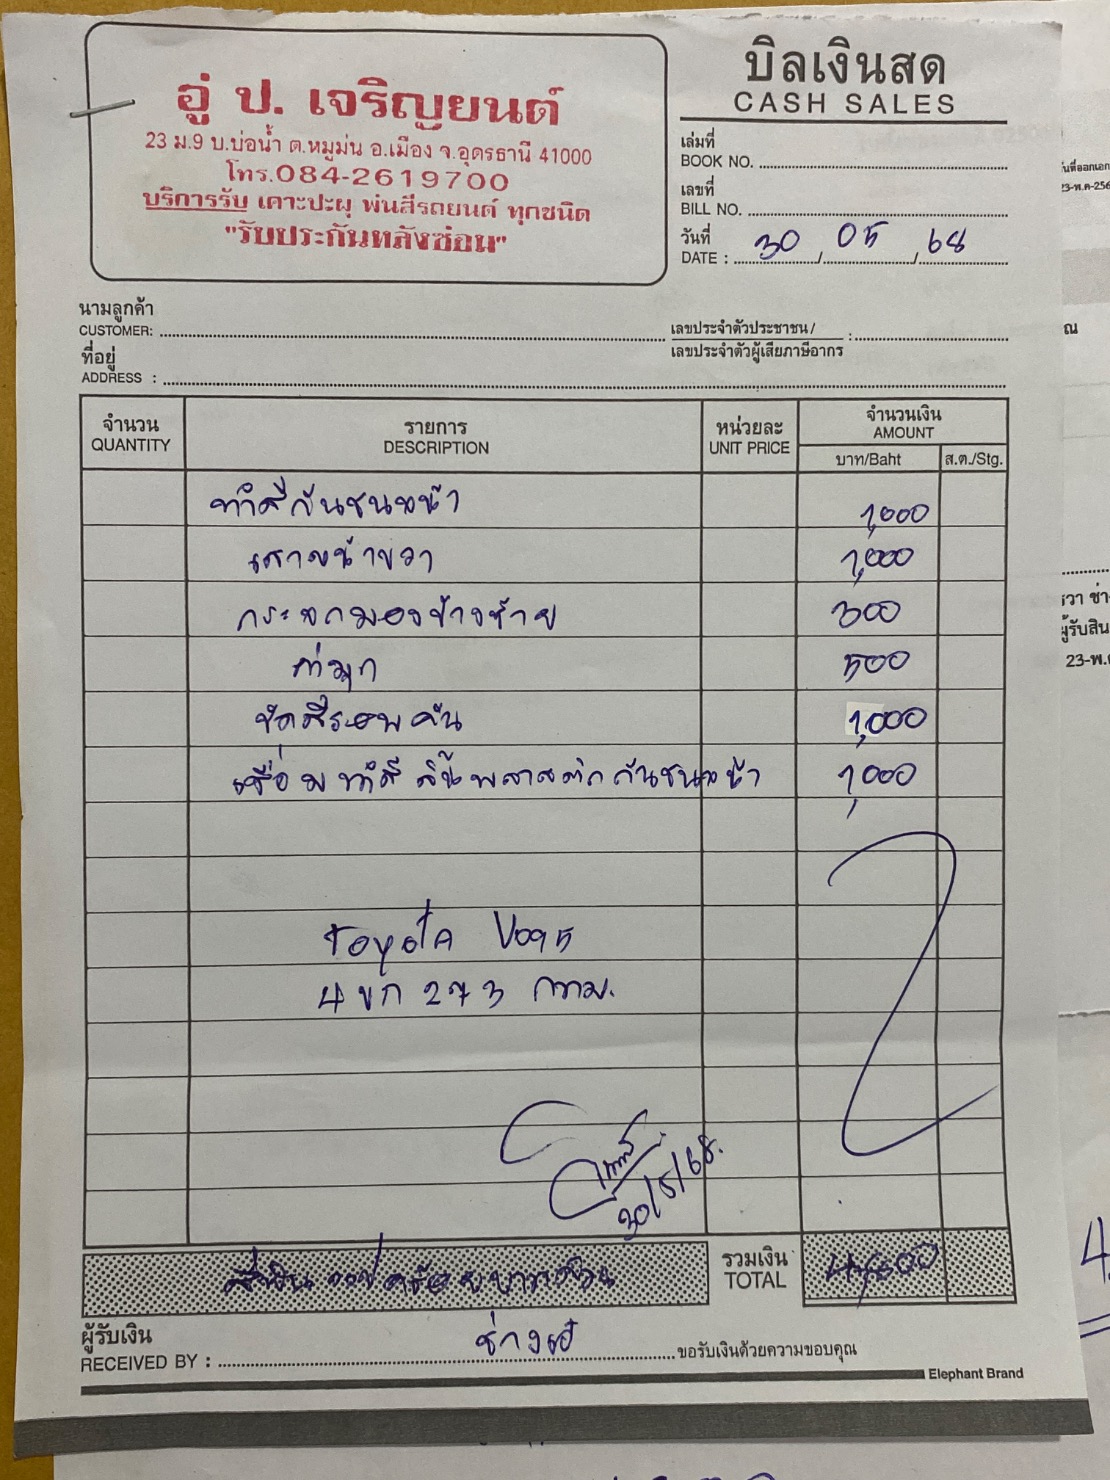 อู่ ป. เจริญยนต์
23 ม.9 บ.บ่อน้ำ ต.หมูม่น อ.เมือง จ.อุดรธานี 41000
โทร.084-2619700
บริการรับ เคาะปะผุ พ่นสีรถยนต์ ทุกชนิด
"รับประกันหลังซ่อม"
บิลเงินสด
CASH SALES
เล่มที่
BOOK NO.
เลขที่
BILL NO.
วันที่
DATE : 30 / 05 / 68
นามลูกค้า
CUSTOMER:
เลขประจำตัวประชาชน /
เลขประจำตัวผู้เสียภาษีอากร :
ที่อยู่
ADDRESS :
จำนวน รายการ หน่วยละ จำนวนเงิน
QUANTITY DESCRIPTION UNIT PRICE AMOUNT
บาท/Baht ส.ต./Stg.
ทำสีกันชนหน้า 1,000
เสาหน้าขวา 1,000
กระจกมองข้างซ้าย 300
500
ขัดสีรอบคัน 1,000
เชื่อมทำสี ลิ้นพลาสติกกันชนหน้า 1,000
Toyota
4 ขก 273 กทม.
30/5/68.
สี่พันแปดร้อยบาทถ้วน รวมเงิน 4,800
TOTAL
ผู้รับเงิน
RECEIVED BY : ขอรับเงินด้วยความขอบคุณ
Elephant Brand
23-พ.ค-256
ผู้รับสิน
23-พ.